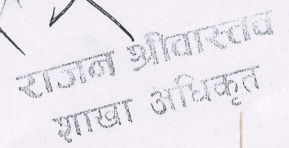 राजन श्रीवास्तव
शाखा अधिकृत